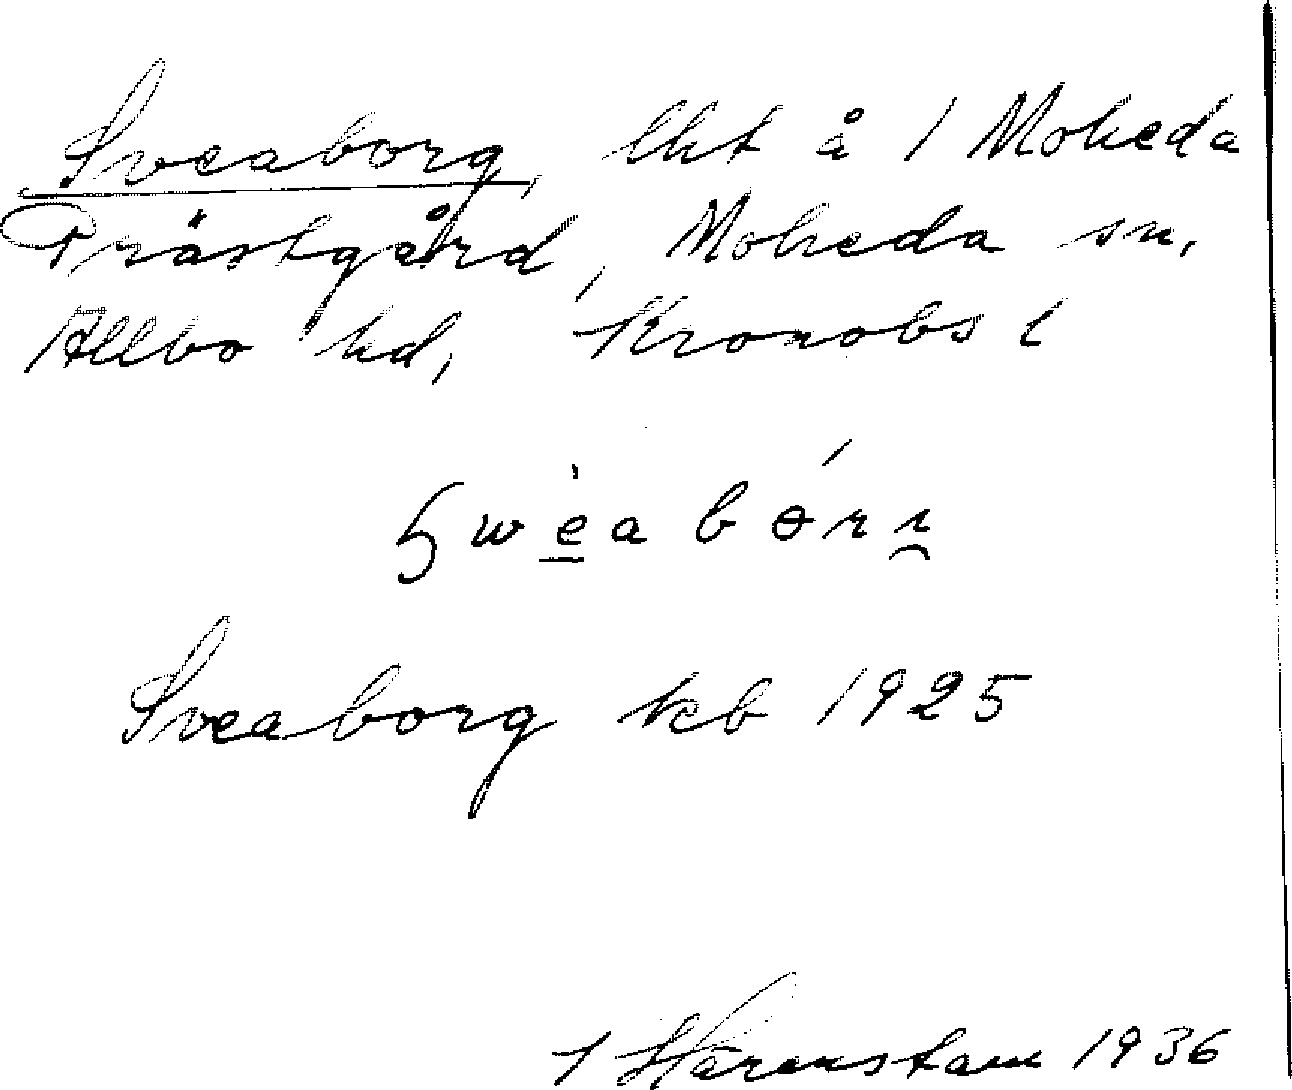 Sveaborg, lht å 1 Moheda
Prästgård, Moheda sn,
Allbo hd, Kronobs l
Sveaborg kb 1925
1936